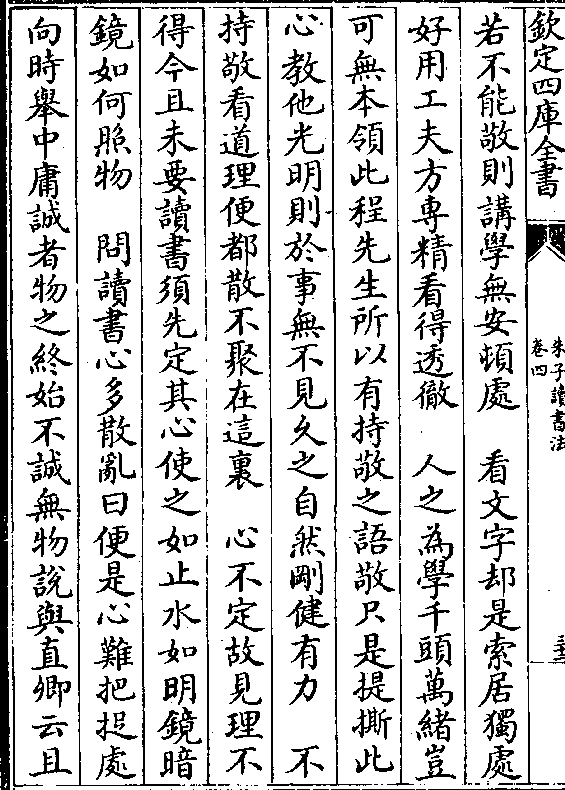 欽定四庫全書
朱子讀書法
卷四
若不能敬則講學無安頓處　看文字却是索居獨處
好用工夫方專精看得透徹　人之為學千頭萬緒豈
可無本領此程先生所以有持敬之語敬只是提撕此
心教他光明則於事無不見久之自然剛健有力　不
持敬看道理便都散不聚在這裏　心不定故見理不
得今且未要讀書須先定其心使之如止水如明鏡暗
鏡如何照物　問讀書心多散亂曰便是心難把捉處
向時舉中庸誠者物之終始不誠無物說與直卿云且